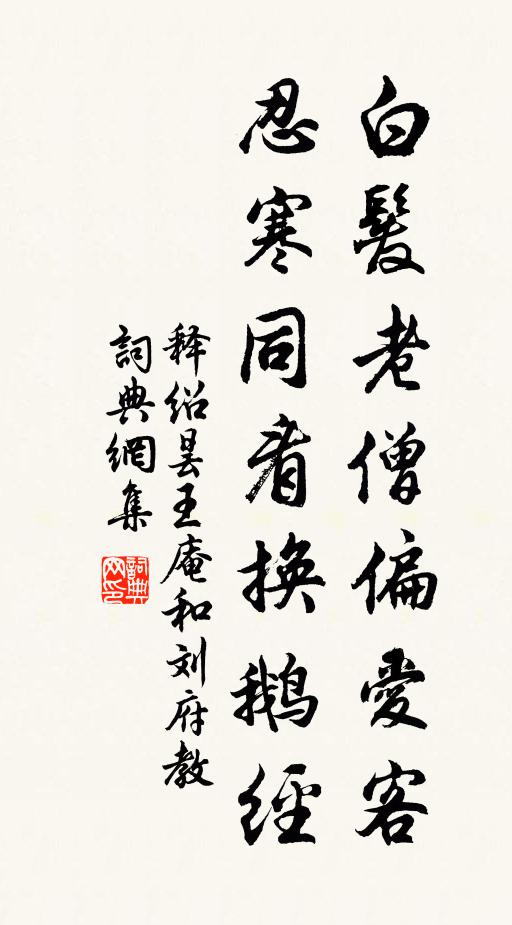 白髮老僧偏愛客
忍寒同看換鵝經
释绍昙王庵和刘府教
詞典網集
詞典网印